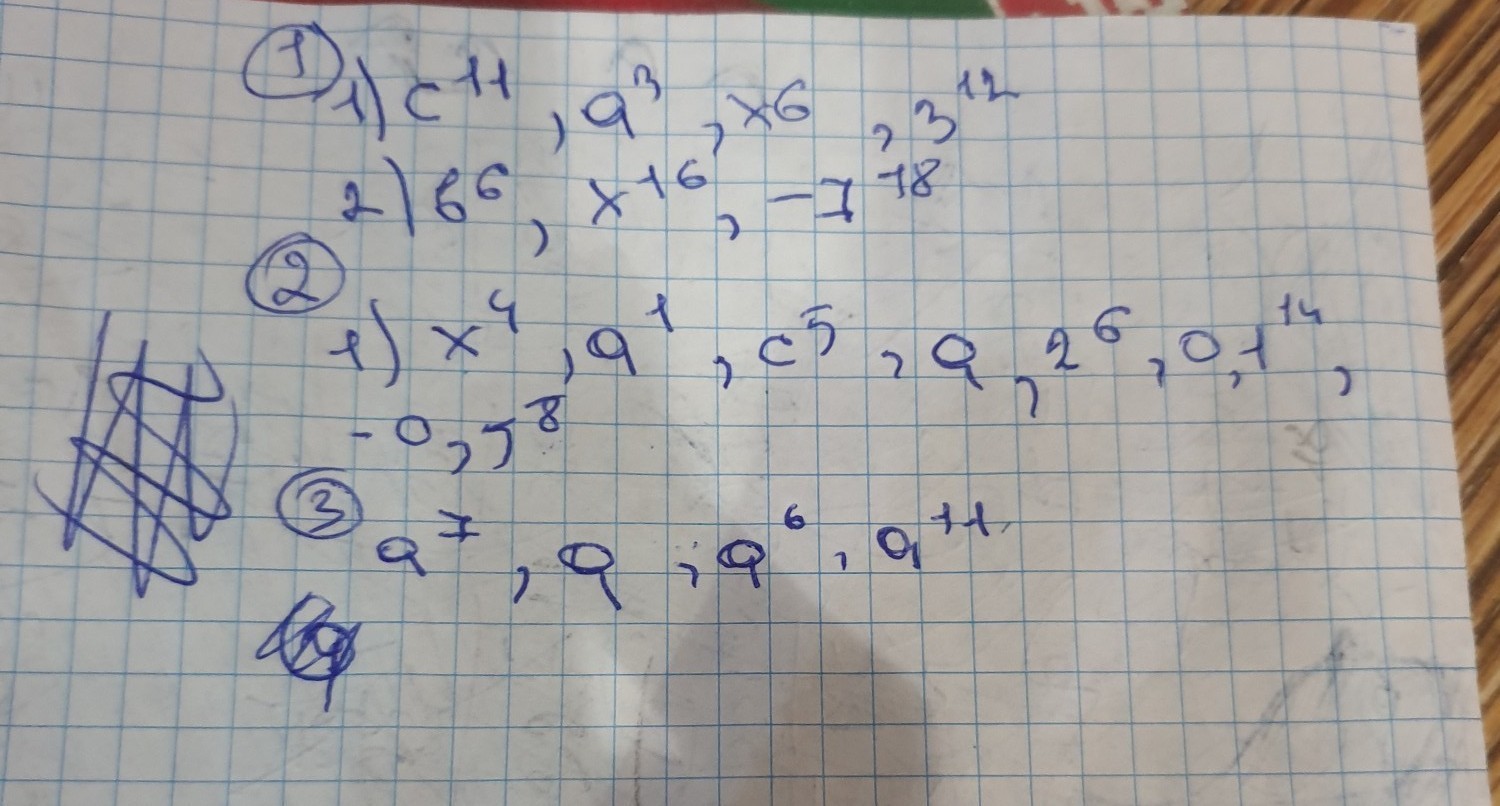 ① 1) c¹¹, a³, x6, 3¹²
2) b⁶, x¹⁶, -7¹⁸
②
1) x⁴, a¹, c⁵, a, 2⁶, 0,1¹⁴,
-0,5⁸
③ a⁷, a, a⁶, a¹¹